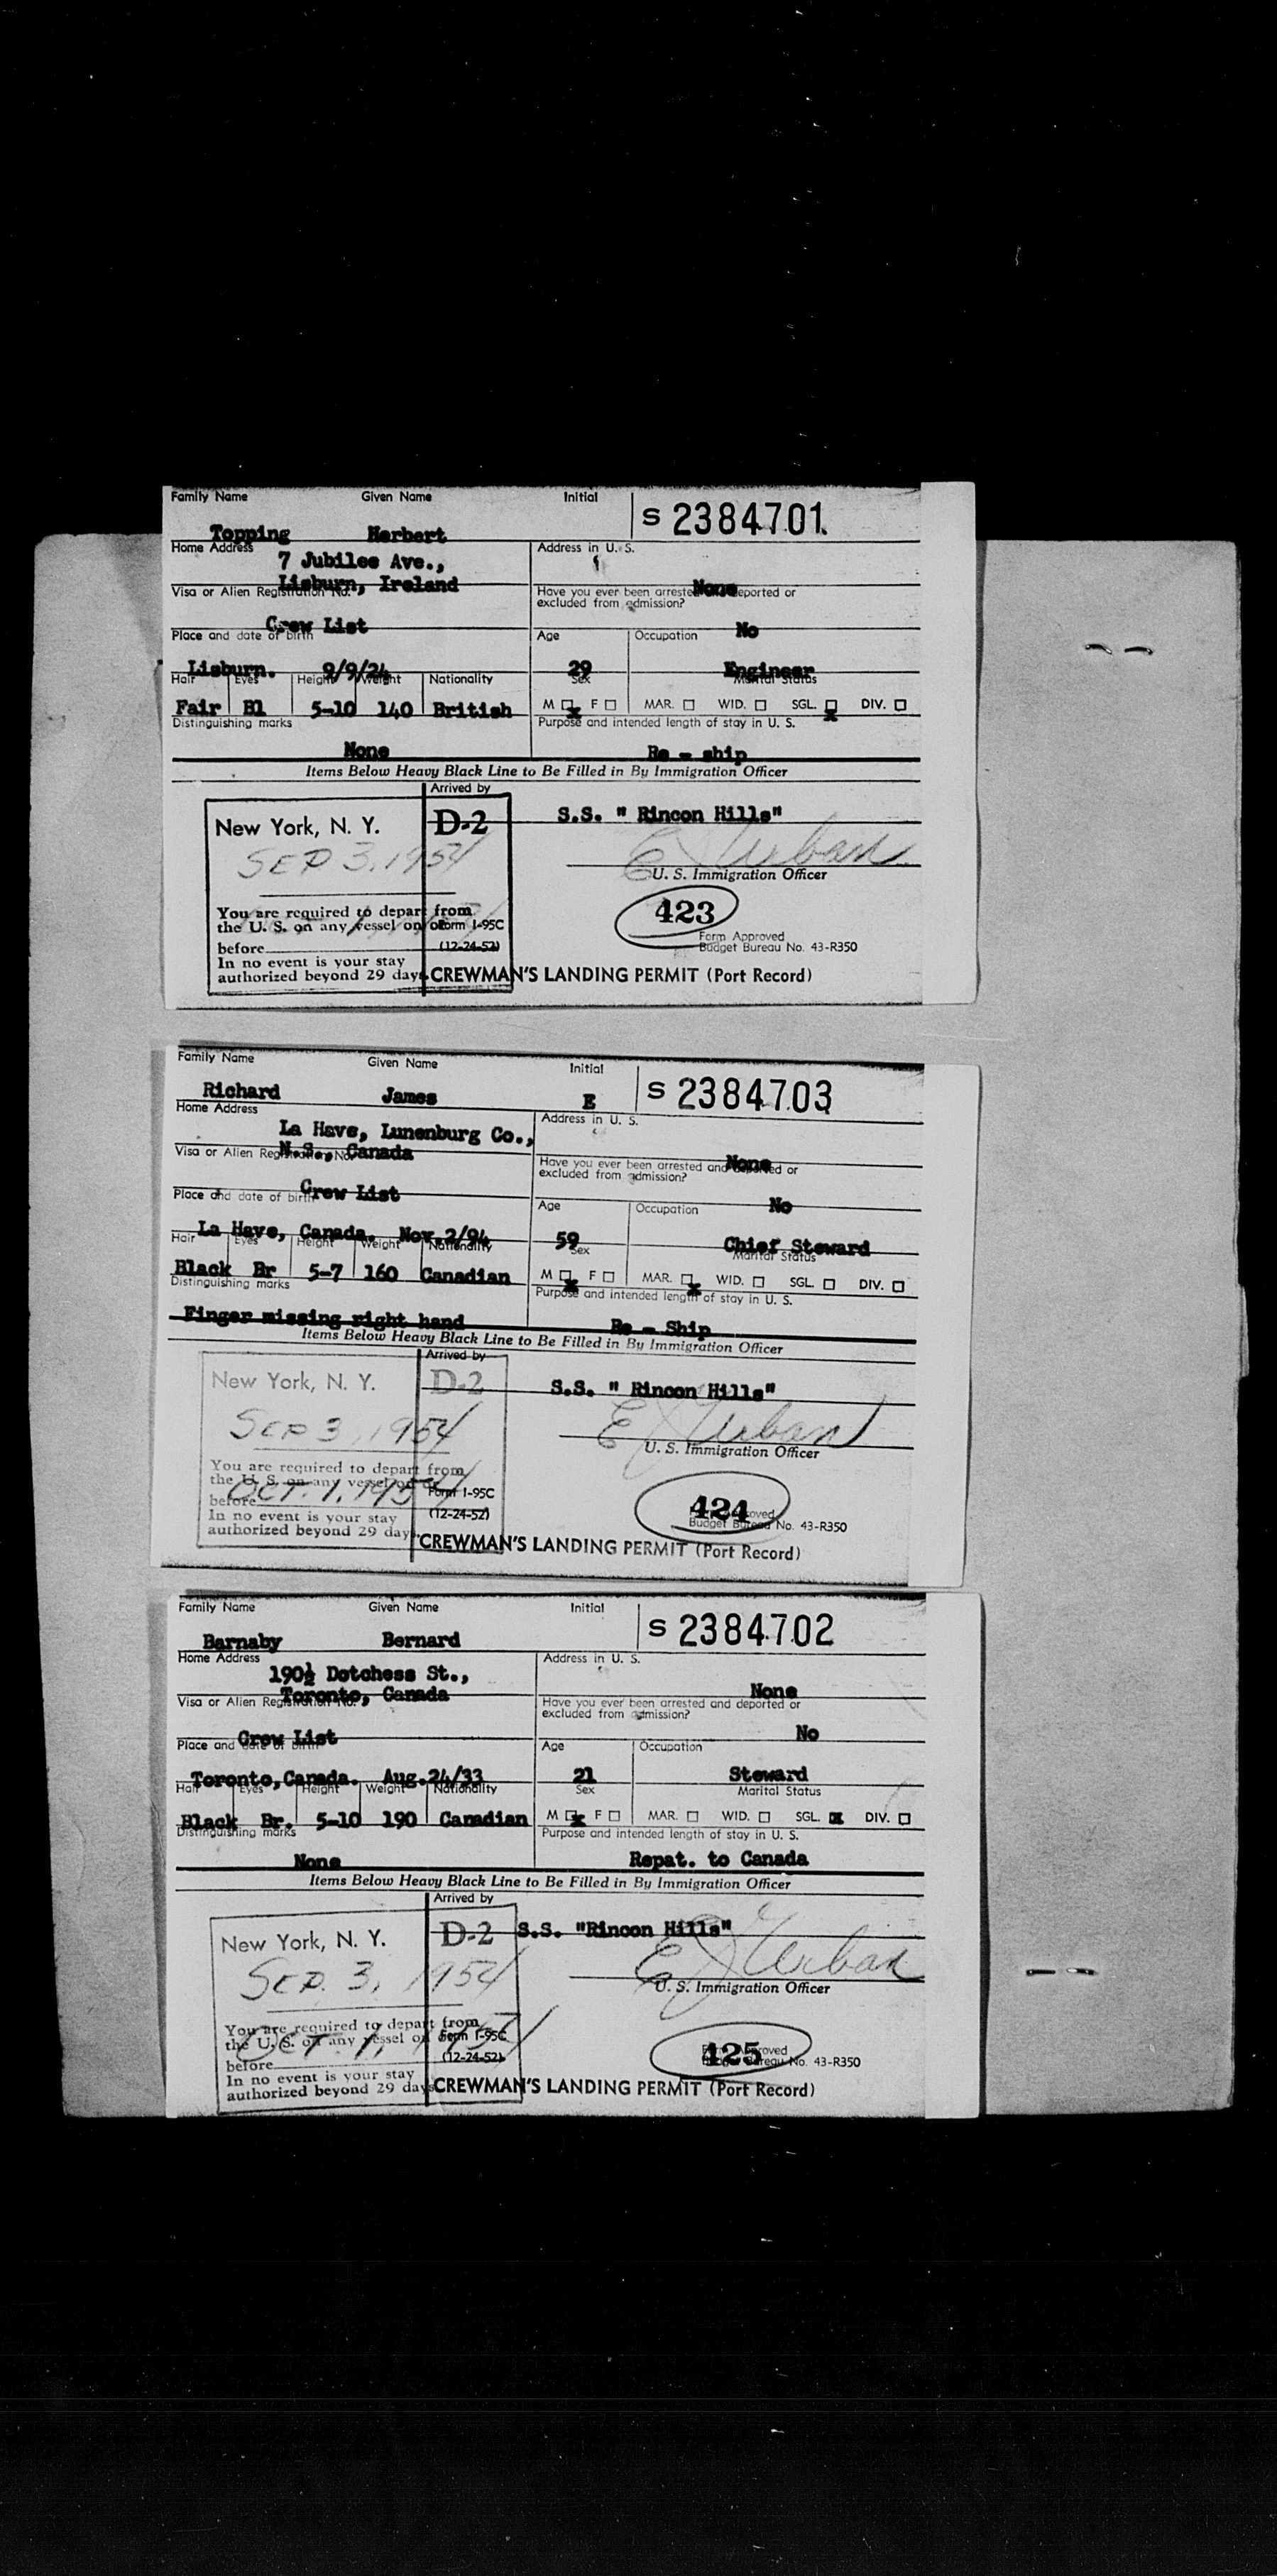 Family Name Given Name Initial S 2384701
Topping Herbert
Home Address Address in U. S.
7 Jubilee Ave.,
Lisburn, Ireland None
Visa or Alien Registration No. Have you ever been arrested and deported or
excluded from admission?
Crew List No
Place and date of birth Age Occupation
Lisburn. 9/9/24 29 Engineer
Hair Eyes Height Weight Nationality Sex Marital Status
Fair Bl 5-10 140 British M ☒ F ☐ MAR. ☐ WID. ☐ SGL. ☒ DIV. ☐
Distinguishing marks Purpose and intended length of stay in U. S.
None Re - ship
Items Below Heavy Black Line to Be Filled in By Immigration Officer
Arrived by
New York, N. Y. D-2 S.S. " Rincon Hills"
SEP 3, 1954 E J Urban
U. S. Immigration Officer
You are required to depart from
the U. S. on any vessel on or Form I-95C 423
before (12-24-52) Form Approved
Budget Bureau No. 43-R350
In no event is your stay
authorized beyond 29 days. CREWMAN'S LANDING PERMIT (Port Record)
Family Name Given Name Initial S 2384703
Richard James E
Home Address Address in U. S.
La Have, Lunenburg Co.,
N.S., Canada None
Visa or Alien Registration No. Have you ever been arrested and deported or
excluded from admission?
Crew List No
Place and date of birth Age Occupation
La Have, Canada. Nov.2/94 59 Chief Steward
Hair Eyes Height Weight Nationality Sex Marital Status
Black Br 5-7 160 Canadian M ☒ F ☐ MAR. ☒ WID. ☐ SGL. ☐ DIV. ☐
Distinguishing marks Purpose and intended length of stay in U. S.
Finger missing right hand Re - Ship
Items Below Heavy Black Line to Be Filled in By Immigration Officer
Arrived by
New York, N. Y. D-2 S.S. " Rincon Hills"
SEP 3, 1954 E J Urban
U. S. Immigration Officer
You are required to depart from
the U. S. on any vessel on or Form I-95C 424
before OCT. 1, 1954 (12-24-52) Form Approved
Budget Bureau No. 43-R350
In no event is your stay
authorized beyond 29 days. CREWMAN'S LANDING PERMIT (Port Record)
Family Name Given Name Initial S 2384702
Barnaby Bernard
Home Address Address in U. S.
190½ Dotchess St.,
Toronto, Canada None
Visa or Alien Registration No. Have you ever been arrested and deported or
excluded from admission?
Crew List No
Place and date of birth Age Occupation
Toronto,Canada. Aug.24/33 21 Steward
Hair Eyes Height Weight Nationality Sex Marital Status
Black Br. 5-10 190 Canadian M ☒ F ☐ MAR. ☐ WID. ☐ SGL. ☒ DIV. ☐
Distinguishing marks Purpose and intended length of stay in U. S.
None Repat. to Canada
Items Below Heavy Black Line to Be Filled in By Immigration Officer
Arrived by
New York, N. Y. D-2 S.S. "Rincon Hills"
SEP. 3, 1954 E J Urban
U. S. Immigration Officer
You are required to depart from
the U. S. on any vessel on or Form I-95C 425
before OCT. 1, 1954 (12-24-52) Form Approved
Budget Bureau No. 43-R350
In no event is your stay
authorized beyond 29 days CREWMAN'S LANDING PERMIT (Port Record)